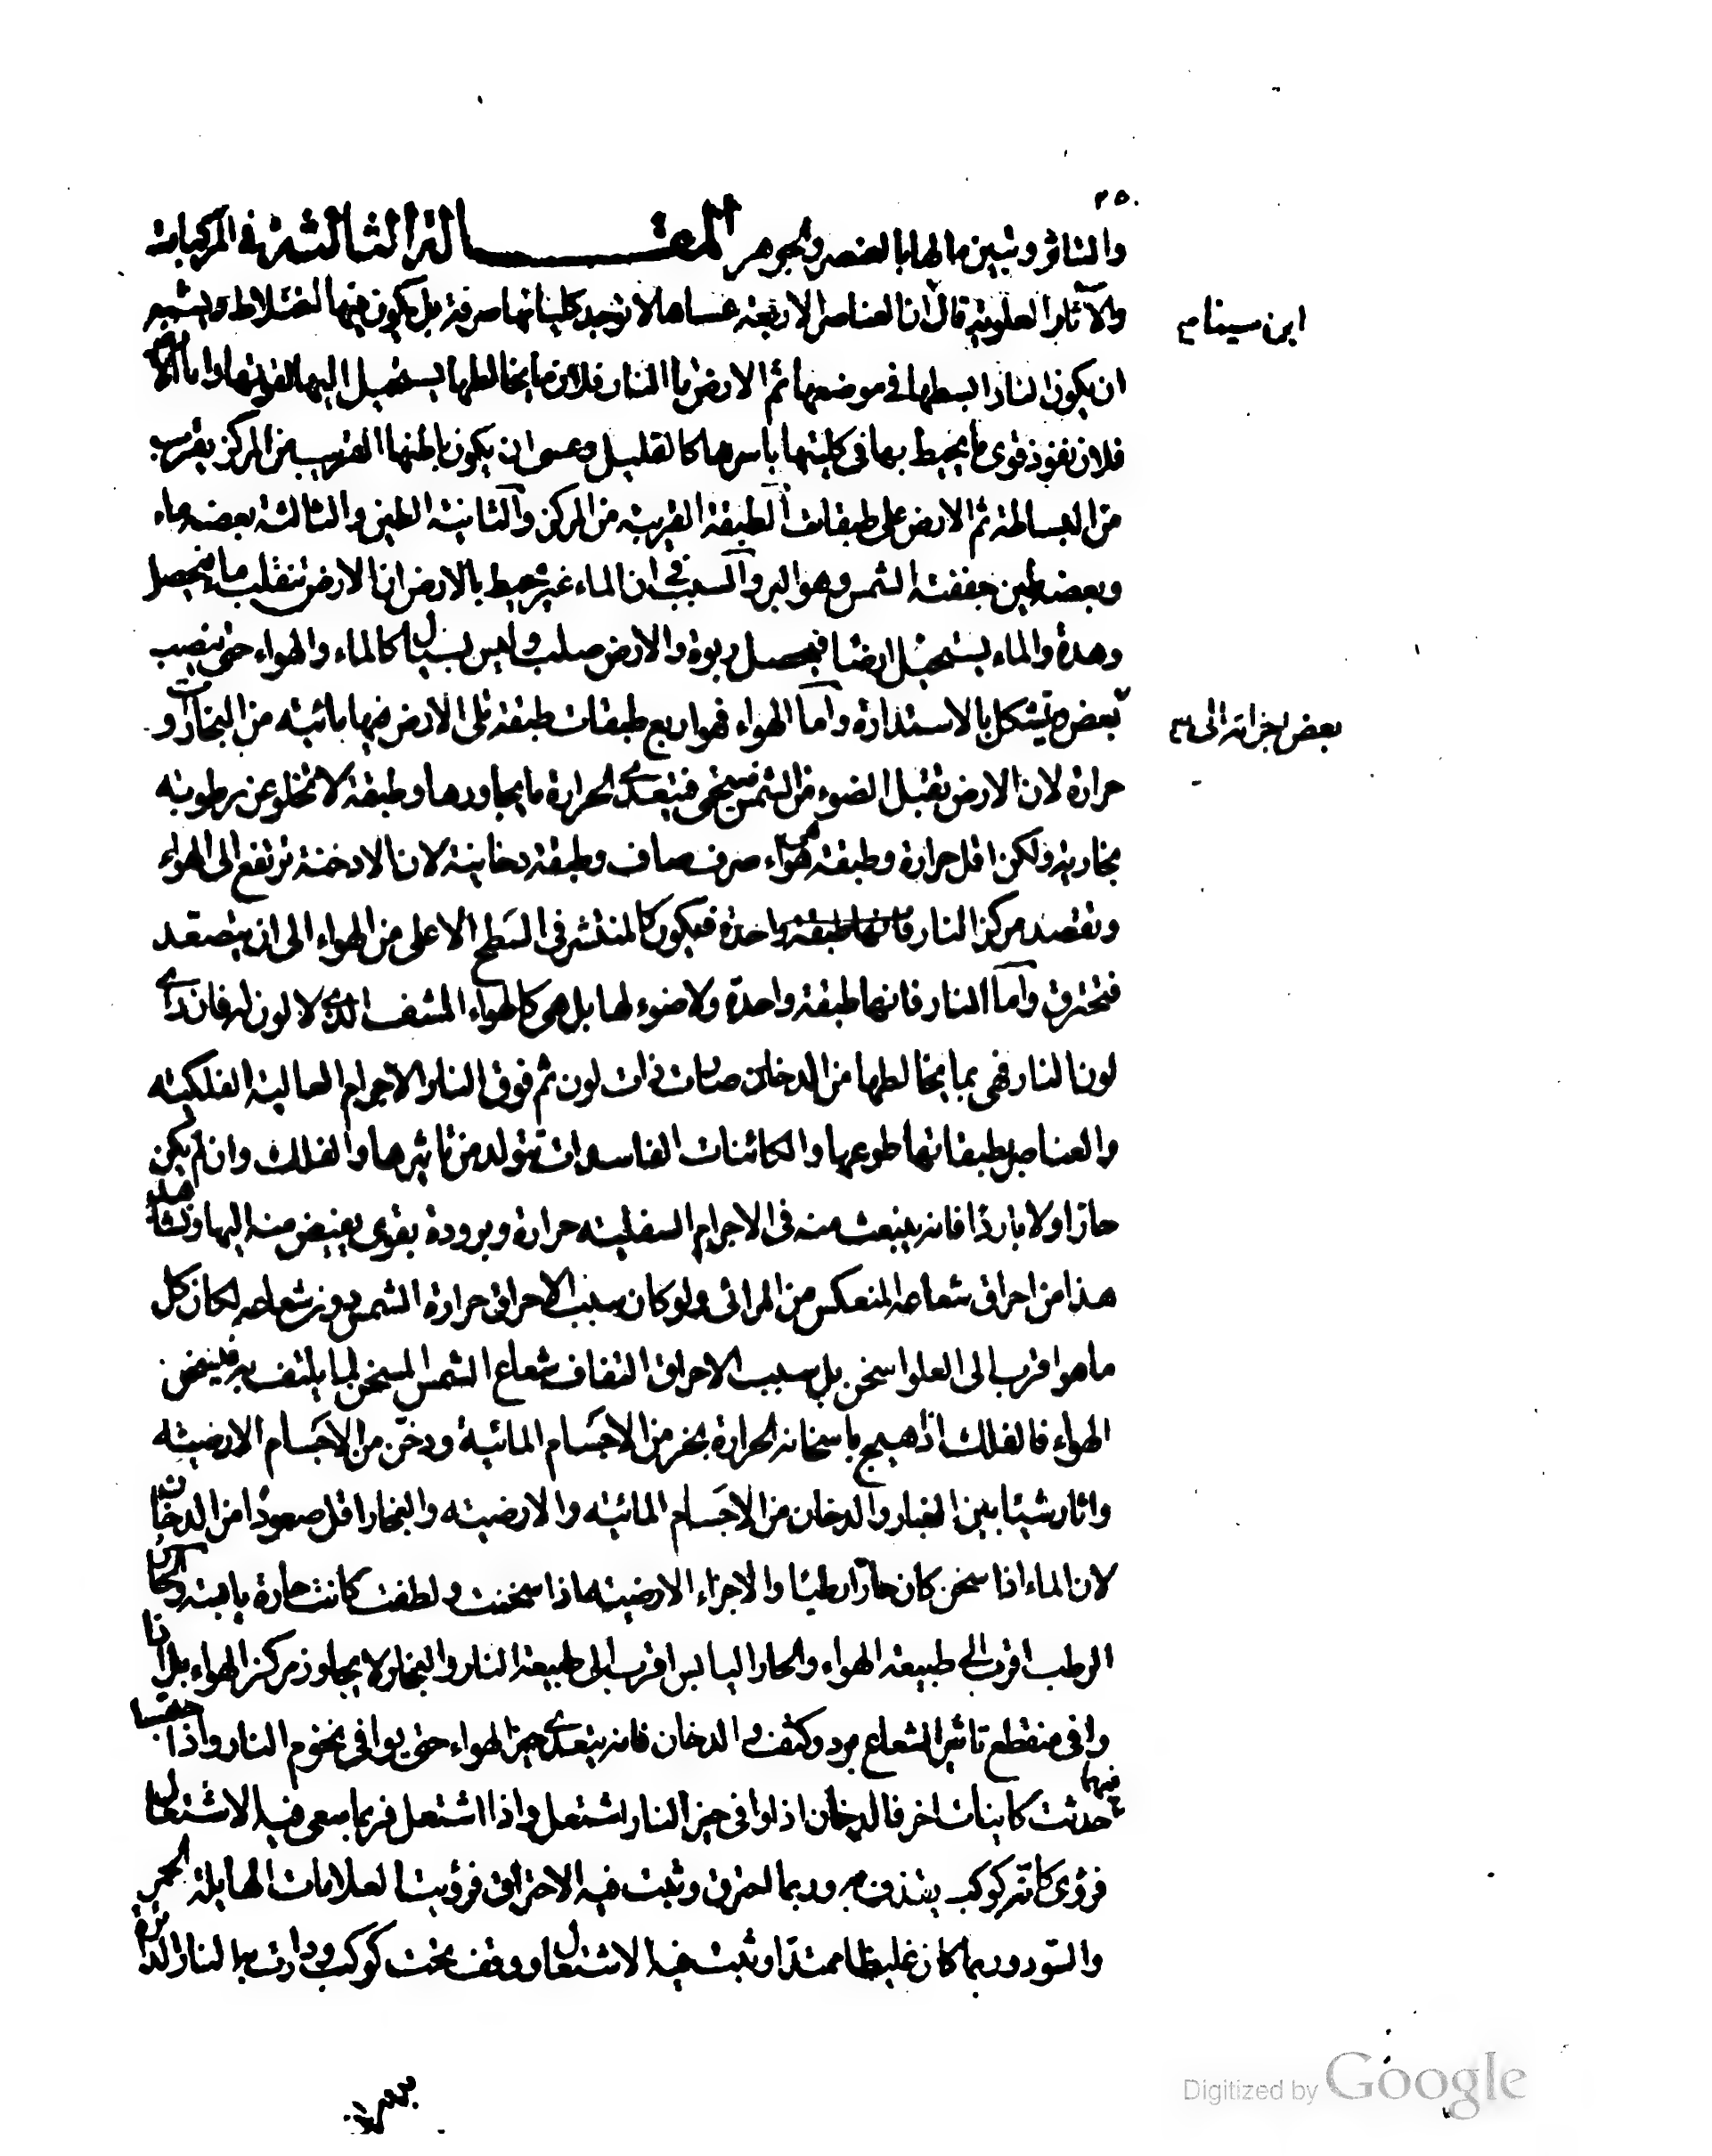 ٢٥٠
والتنافر ونبين مالها بالعنصر والجوهر المقـــالة الثالثة في المركبات
والآثار العلوية قال ان العناصر الاربعة عساها لا توجد كلياتها صرفة بل يكون فيها اختلاط ويشبه
ابن سينا
ان يكون النار ابسطها في موضعها ثم الارض اما النار فلان ما يخالطها يستحيل اليها لقوتها واما الارض
فلان نفوذ قوى ما يحيط بها في كليتها باسرها كالقليل وعسى ان يكون باطنها القريب من المركز يقرب
من البساطة ثم الارض على طبقات الطبقة القريبة من المركز والثانية الطين والثالثة بعضه ماء
وبعضه طين جففته الشمس وهو البر والسبب في ان الماء غير محيط بالارض ان الارض تنقلب ماء فيحصل
وهدة والماء يستحيل ارضا فيحصل ربوة والارض صلب وليس بسيال كالماء والهواء حتى ينصب
بعض ويتشكل بالاستدارة واما الهواء فهو اربع طبقات طبقة تلي الارض فيها مائية من البخارات و
بعض اجزائه الى
حرارة لان الارض تقبل الضوء من الشمس فيتحمى فتتعدى الحرارة ما يجاورها وطبقة لا تخلو عن رطوبة
بخارية ولكن اقل حرارة وطبقة هي هواء صرف صاف وطبقة دخانية لان الادخنة ترتفع الى الهواء
وتقصد مركز النار فانها طبقة واحدة فيكون كالمنتشر في السطح الاعلى من الهواء الى ان يتصعد
فتحترق واما النار فانها طبقة واحدة ولا ضوء لها بل هي كالهواء المشف الذي لا لون له فان رأى
لون النار فهي بما يخالطها من الدخان صارت ذات لون ثم فوق النار الاجرام العالية الفلكية
والعناصر بطبقاتها طوعها والكائنات الفاسدات تتولد من تأثيرها والفلك وان لم يكن
حارا ولا باردا فانه ينبعث منه في الاجرام السفلية حرارة وبرودة بقوى يفيض منه اليها ونشاهد
هذا من احراق شعاعه المنعكس من المرائي ولو كان سبب الاحراق حرارة الشمس دون شعاعه لكان كل
ما هو اقرب الى العلو اسخن بل سبب الاحراق التفاف شعاع الشمس المسخن لما يلتف به فيسخن
الهواء فالفلك اذا هيج باسخانه الحرارة بخر من الاجسام المائية ودخن من الاجسام الارضية
واثار شيئا بين الغبار والدخان من الاجسام المائية والارضية والبخار اقل صعودا من الدخان
لان الماء اذا سخن كان حارا رطبا والاجزاء الارضية اذا سخنت ولطفت كانت حارة يابسة والحار
الرطب اقرب الى طبيعة الهواء والحار اليابس اقرب الى طبيعة النار والبخار لا يجاوز مركز الهواء بل اذا
وافى منقطع تاثير الشعاع برد وكثف والدخان فانه يتعدى حيز الهواء حتى يوافى تخوم النار واذا احتبسا
فيهما حدثت كاينات اخر فالدخان اذا وافى حيز النار اشتعل واذا اشتعل فربما سعى فيه الاشتعال
فرؤى كانه كوكب يقذف به وربما احترق وثبت فيه الاحتراق فرؤيت العلامات الهايلة الحمر
والسود وربما كان غليظا ممتدا وثبت فيه الاشتعال ووقف تحت كوكب ودارت به النار الدائرة